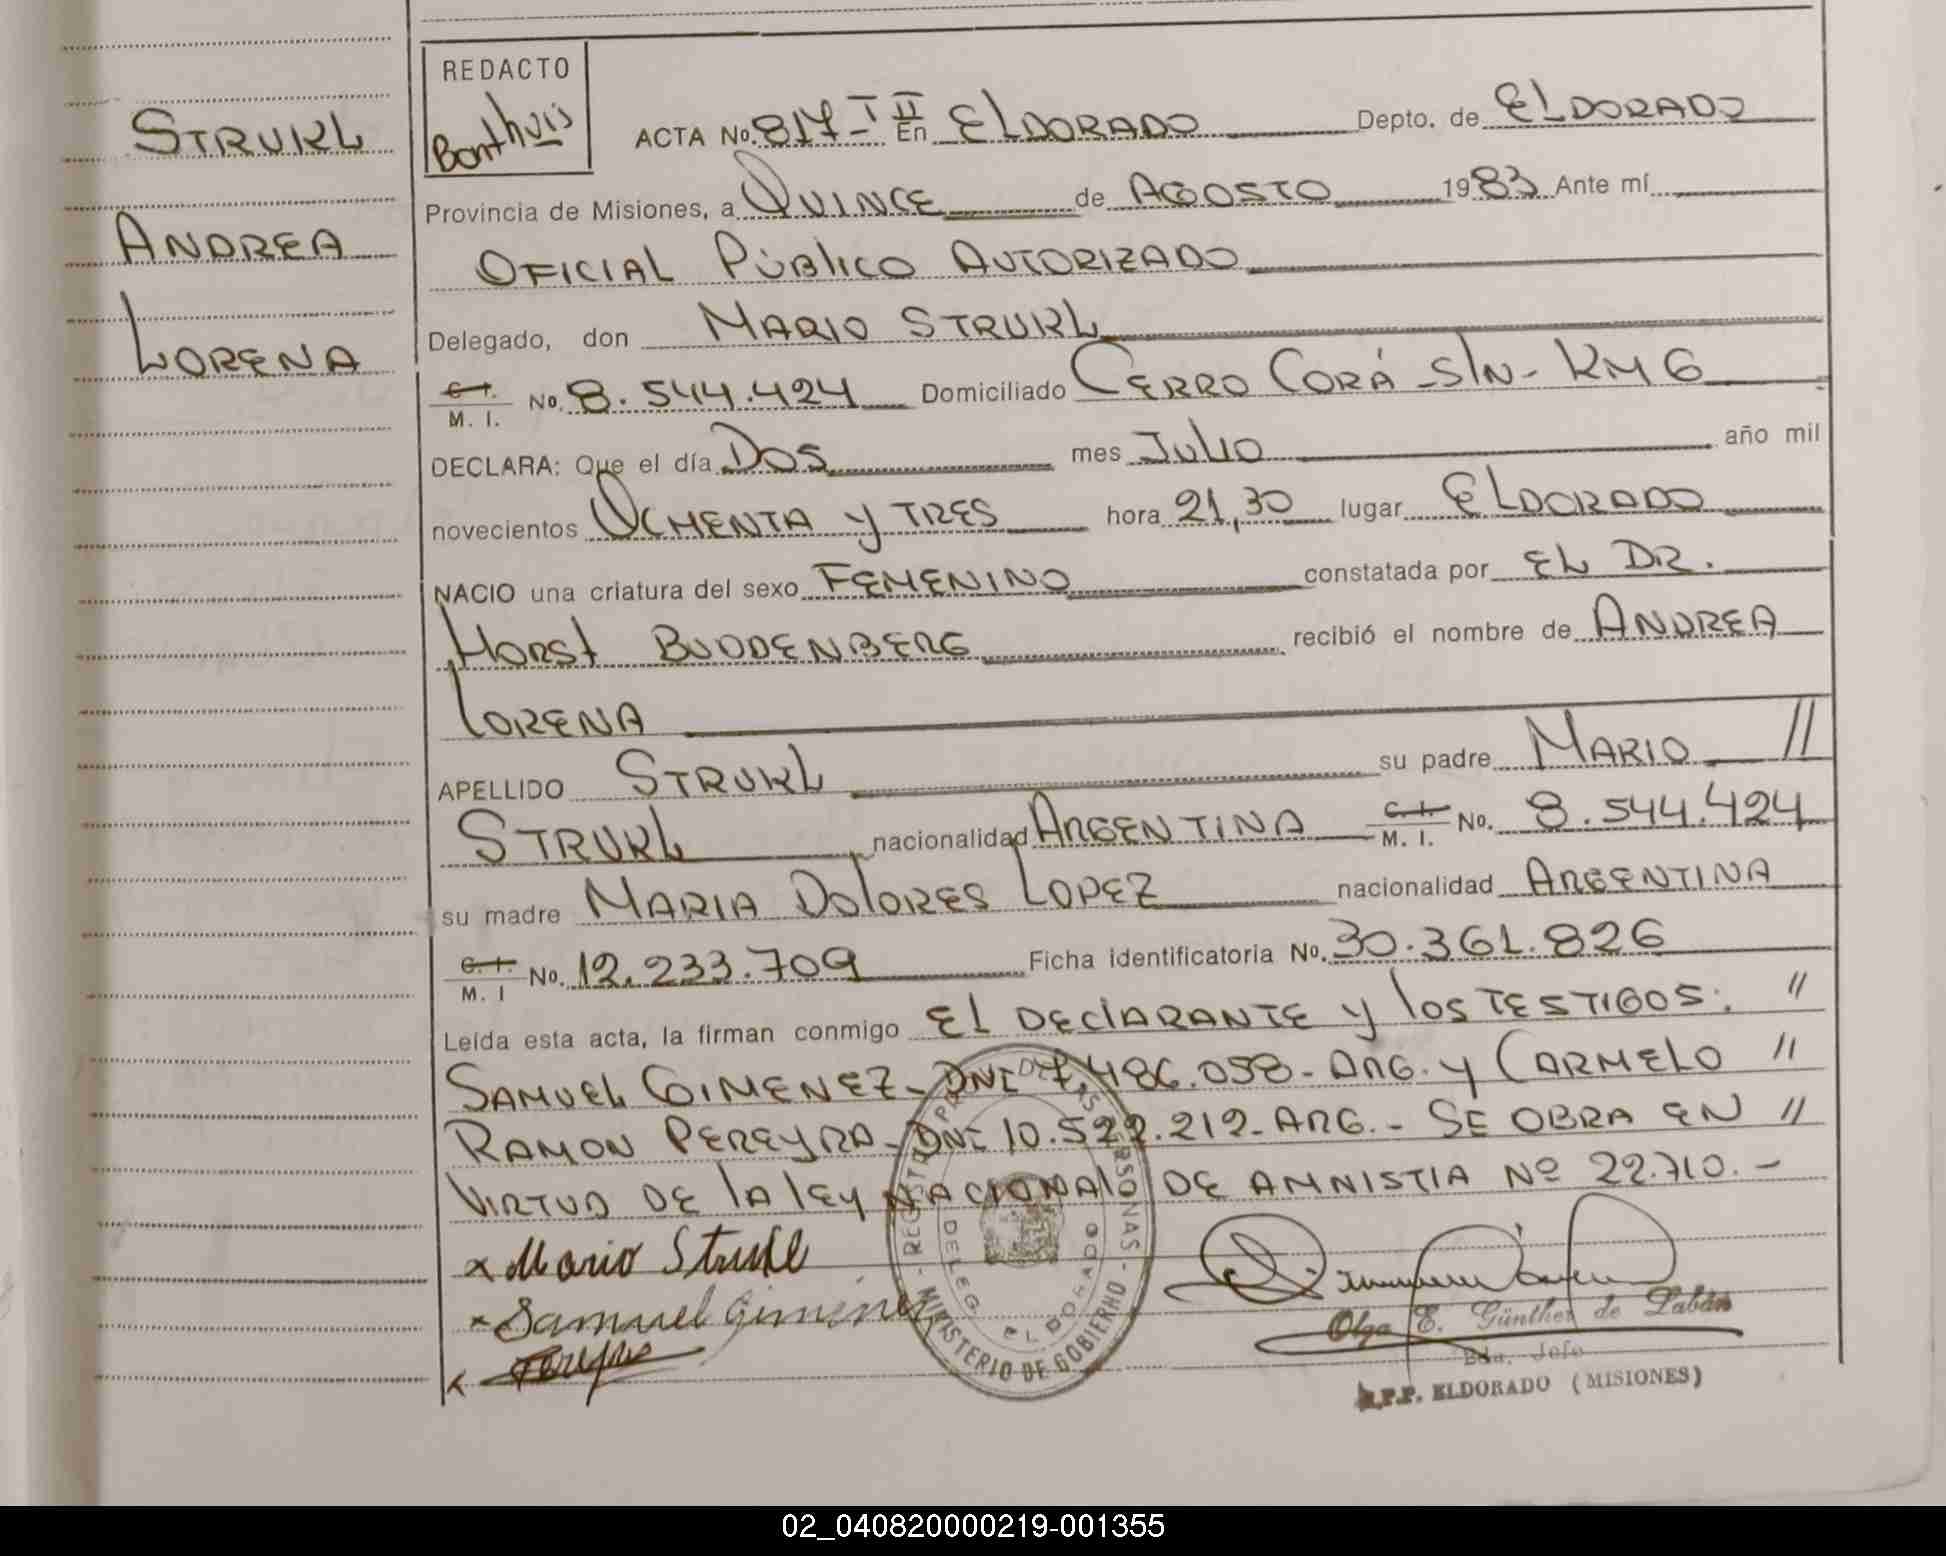 STRUKL
ANDREA
LORENA
REDACTO
Bonthuis
ACTA No. 817-T II En ELDORADO Depto. de ELDORADO
Provincia de Misiones, a QUINCE de AGOSTO 1983 Ante mí
OFICIAL PÚBLICO AUTORIZADO
Delegado, don MARIO STRUKL
C. I. / M. I. No. 8.544.424 Domiciliado CERRO CORÁ - S/N - KM 6
DECLARA: Que el día DOS mes JULIO año mil
novecientos OCHENTA y TRES hora 21,30 lugar ELDORADO
NACIO una criatura del sexo FEMENINO constatada por EL DR.
HORST BUDDENBERG recibió el nombre de ANDREA
LORENA
APELLIDO STRUKL su padre MARIO //
STRUKL nacionalidad ARGENTINA C. I. / M. I. No. 8.544.424
su madre MARIA DOLORES LOPEZ nacionalidad ARGENTINA
C. I. / M. I No. 12.233.709 Ficha identificatoria No. 30.361.826
Leída esta acta, la firman conmigo EL DECLARANTE y los TESTIGOS: //
SAMUEL GIMENEZ - DNI 7.486.058 - ARG. y CARMELO //
RAMON PEREYRA - DNI 10.522.212 - ARG. - SE OBRA EN //
VIRTUD DE la ley NACIONAL DE AMNISTIA Nº 22.710. -
x Mario Strukl
x Samuel Gimenez
x Pereyra
REGISTRO PROV. DE LAS PERSONAS - MINISTERIO DE GOBIERNO -
DELEG. ELDORADO
Olga E. Günther de Labán
Eda. Jefe
R.P.P. ELDORADO (MISIONES)
02_040820000219-001355